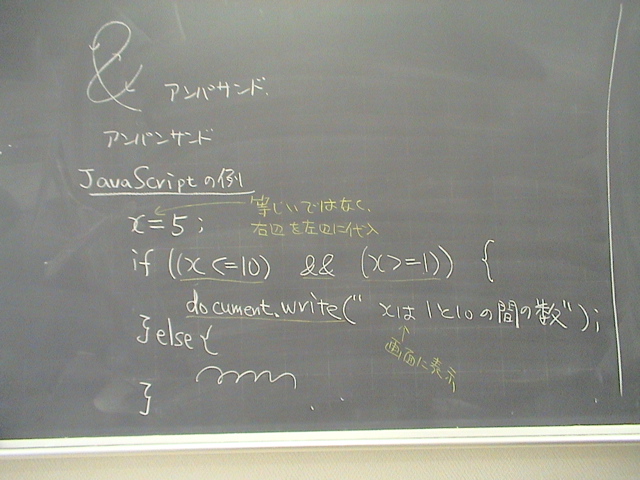 &
アンパサンド
アンパンサンド
JavaScriptの例
x=5;
等しいではなく、
右辺を左辺に代入
if ((x<=10) && (x>=1)) {
document.write("xは1と10の間の数");
画面に表示
}else{
}